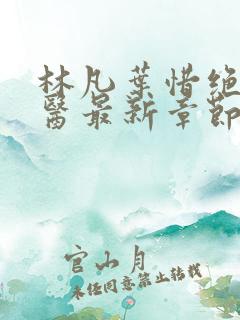 林凡葉惜绝
醫最新章節
官山月
未经同意禁止转载